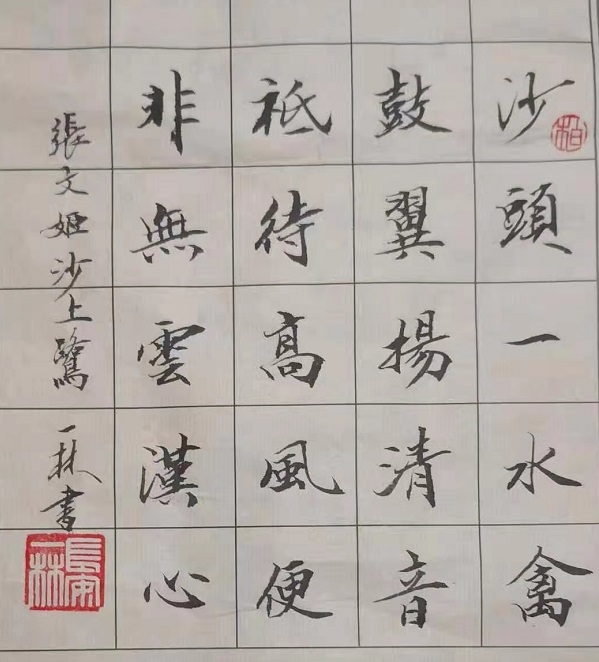 沙頭一水禽
鼓翼揚清音
祗待高風便
非無雲漢心
張文姬沙上鷺 一林書
柏
長安一林